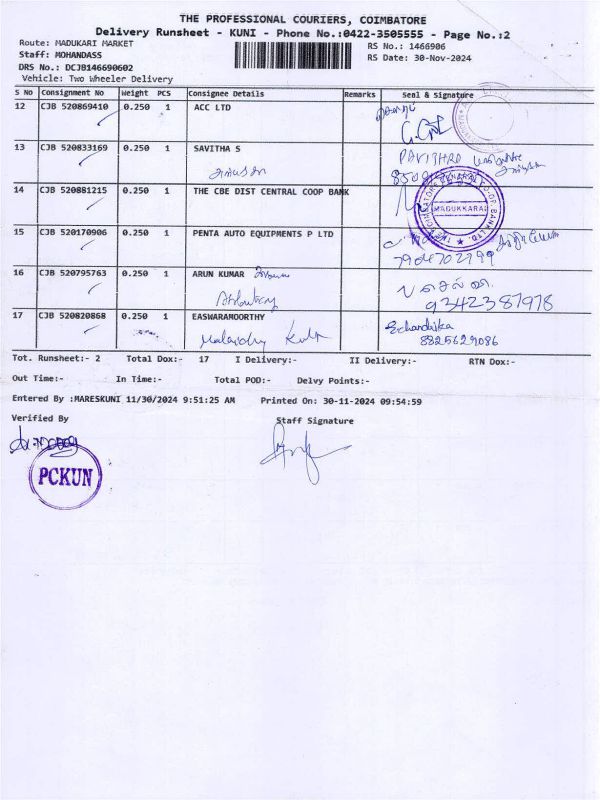 THE PROFESSIONAL COURIERS, COIMBATORE
Delivery Runsheet - KUNI - Phone No.:0422-3505555 - Page No.:2
Route: MADUKARI MARKET RS No.: 1466906
Staff: MOHANDASS RS Date: 30-Nov-2024
DRS No.: DCJB146690602
Vehicle: Two Wheeler Delivery
S NO Consignment No Weight PCS Consignee Details Remarks Seal & Signature
12 CJB 520869410 0.250 1 ACC LTD
13 CJB 520833169 0.250 1 SAVITHA S PAVITHRA
14 CJB 520881215 0.250 1 THE CBE DIST CENTRAL COOP BANK MADUKKARAI
15 CJB 520170906 0.250 1 PENTA AUTO EQUIPMENTS P LTD
7904702799
16 CJB 520795763 0.250 1 ARUN KUMAR
9342387978
17 CJB 520820868 0.250 1 EASWARAMOORTHY
8825629086
Tot. Runsheet:- 2 Total Dox:- 17 I Delivery:- II Delivery:- RTN Dox:-
Out Time:- In Time:- Total POD:- Delvy Points:-
Entered By :MARESKUNI 11/30/2024 9:51:25 AM Printed On: 30-11-2024 09:54:59
Verified By Staff Signature
PCKUN